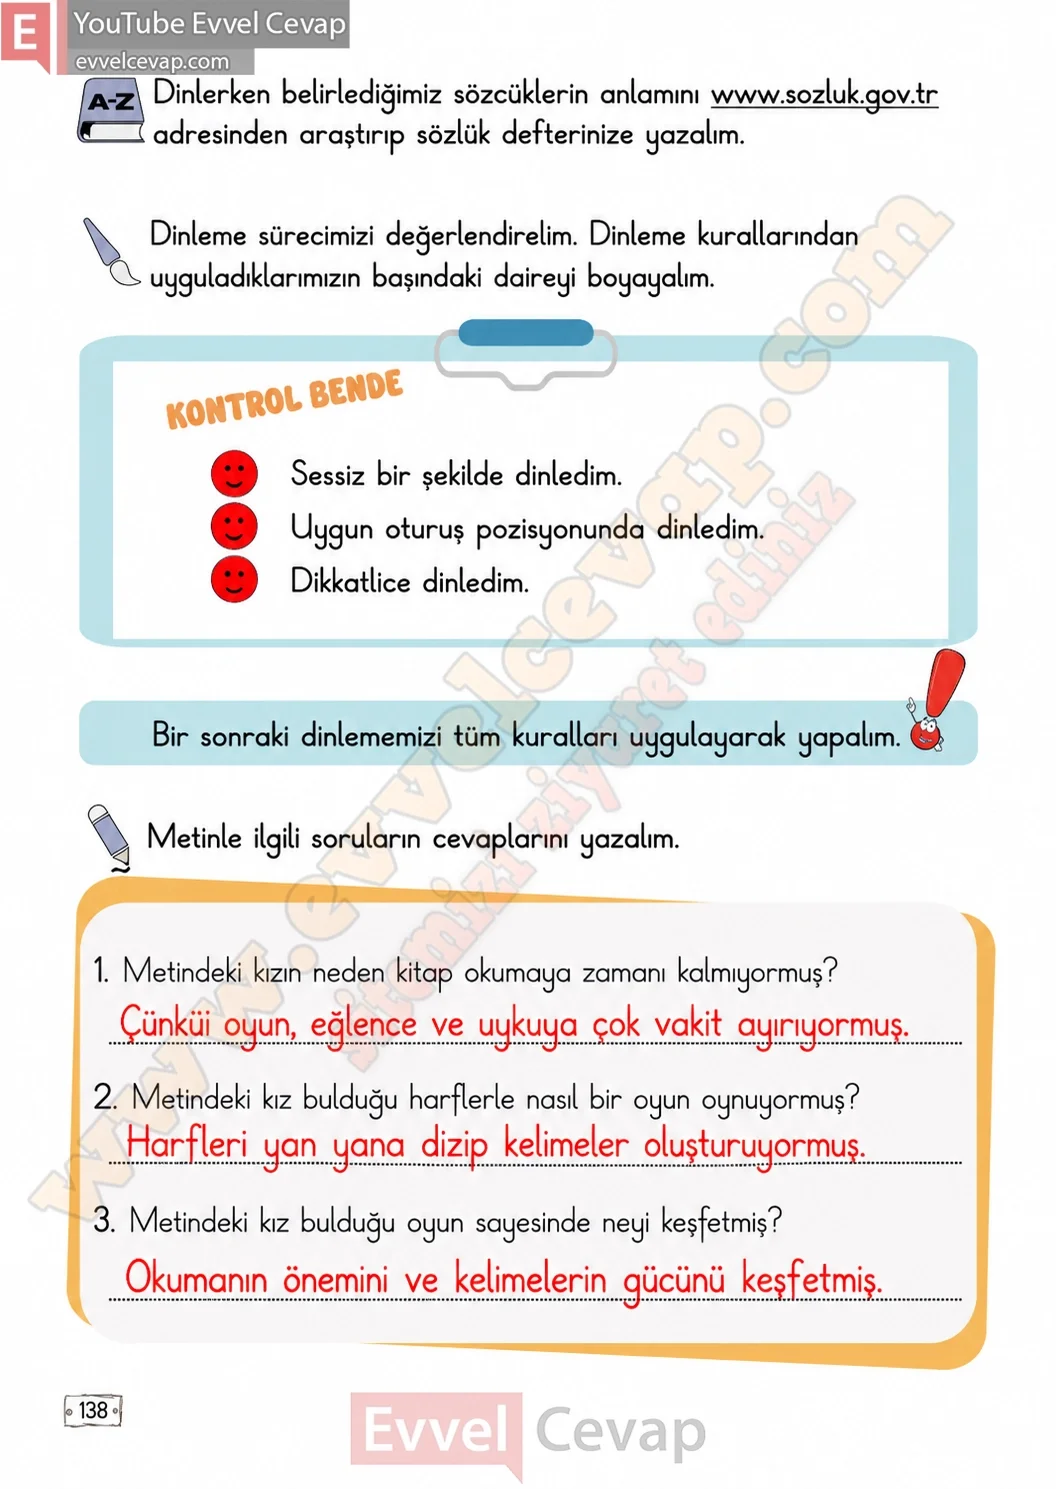 E
YouTube Evvel Cevap
evvelcevap.com
A-Z
Dinlerken belirlediğimiz sözcüklerin anlamını www.sozluk.gov.tr
adresinden araştırıp sözlük defterinize yazalım.
Dinleme sürecimizi değerlendirelim. Dinleme kurallarından
uyguladıklarımızın başındaki daireyi boyayalım.
KONTROL BENDE
Sessiz bir şekilde dinledim.
Uygun oturuş pozisyonunda dinledim.
Dikkatlice dinledim.
Bir sonraki dinlememizi tüm kuralları uygulayarak yapalım.
Metinle ilgili soruların cevaplarını yazalım.
1. Metindeki kızın neden kitap okumaya zamanı kalmıyormuş?
Çünküi oyun, eğlence ve uykuya çok vakit ayırıyormuş.
2. Metindeki kız bulduğu harflerle nasıl bir oyun oynuyormuş?
Harfleri yan yana dizip kelimeler oluşturuyormuş.
3. Metindeki kız bulduğu oyun sayesinde neyi keşfetmiş?
Okumanın önemini ve kelimelerin gücünü keşfetmiş.
138
Evvel Cevap
www.evvelcevap.com
sitemizi ziyaret ediniz